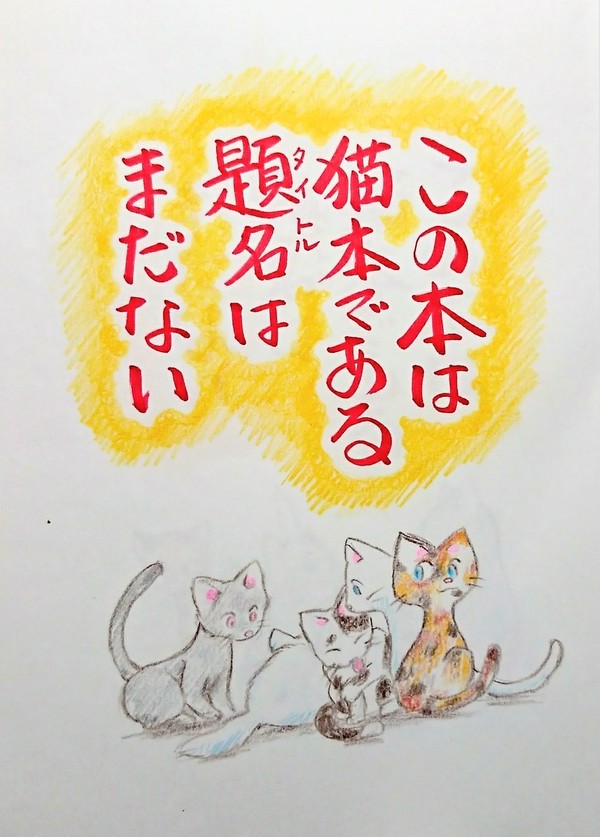 この本は
猫本である
題名は
タイトル
まだない